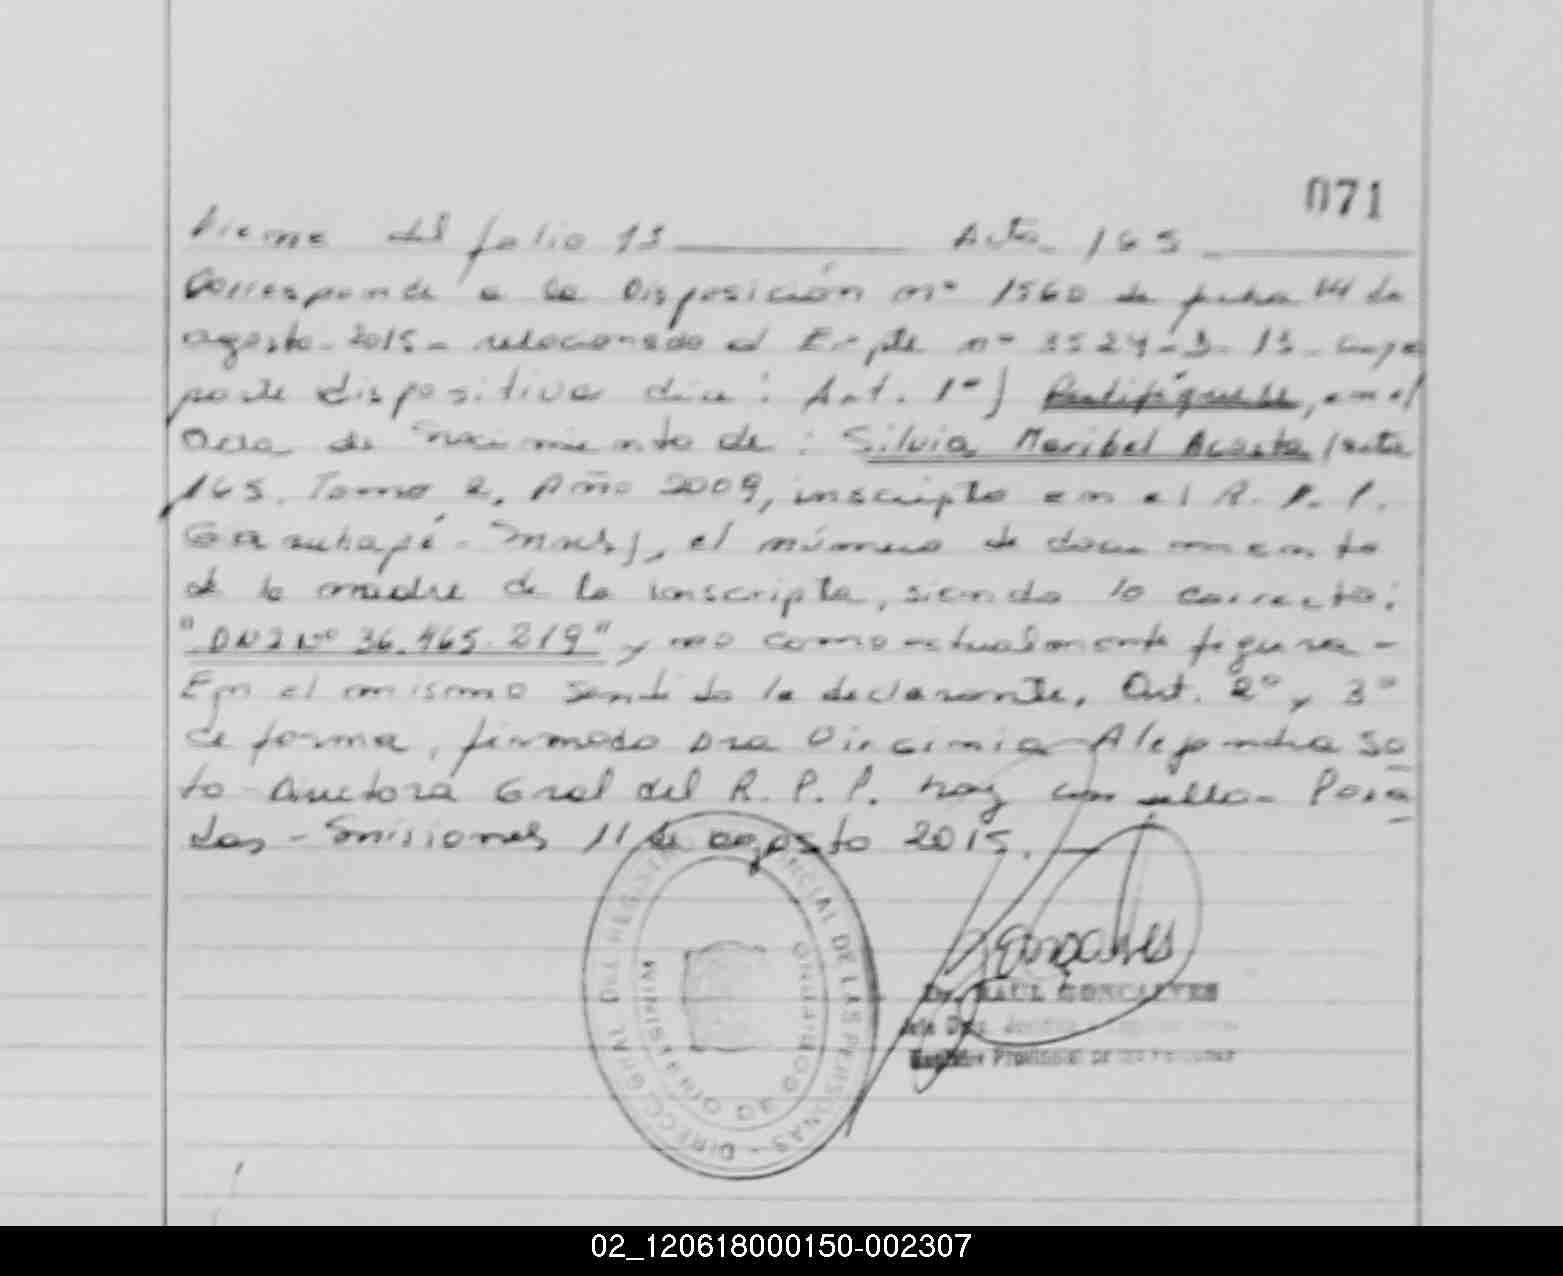 071
Viene del folio 13 Acta 165
Corresponde a la Disposición nº 1560 de fecha 14 de
agosto-2015- relacionado al Expte nº 3524-D-15- cuya
parte dispositiva dice: Art. 1º) Rectifíquese, en el
Acta de Nacimiento de: Silvia Maribel Acosta (acta
165. Tomo 2. Año 2009, inscripta en el R. P. P.
Garuhapé-Mnes), el número de documento
de la madre de la inscripta, siendo lo correcto:
"DNI Nº 36.465.219" y no como actualmente figura-
En el mismo sentido la declarante. Art. 2º y 3º
de forma, firmado Dra Virginia Alejandra So
to Directora Gral del R. P. P. hay un sello- Posa
das-Misiones 11 de agosto 2015.
DIRECC. GRAL. DEL REGISTRO PROVINCIAL DE LAS PERSONAS -
MINISTERIO DE GOBIERNO
Gonçalves
Dr. RAUL GONCALVES
Registro Provincial de las Personas
02_120618000150-002307